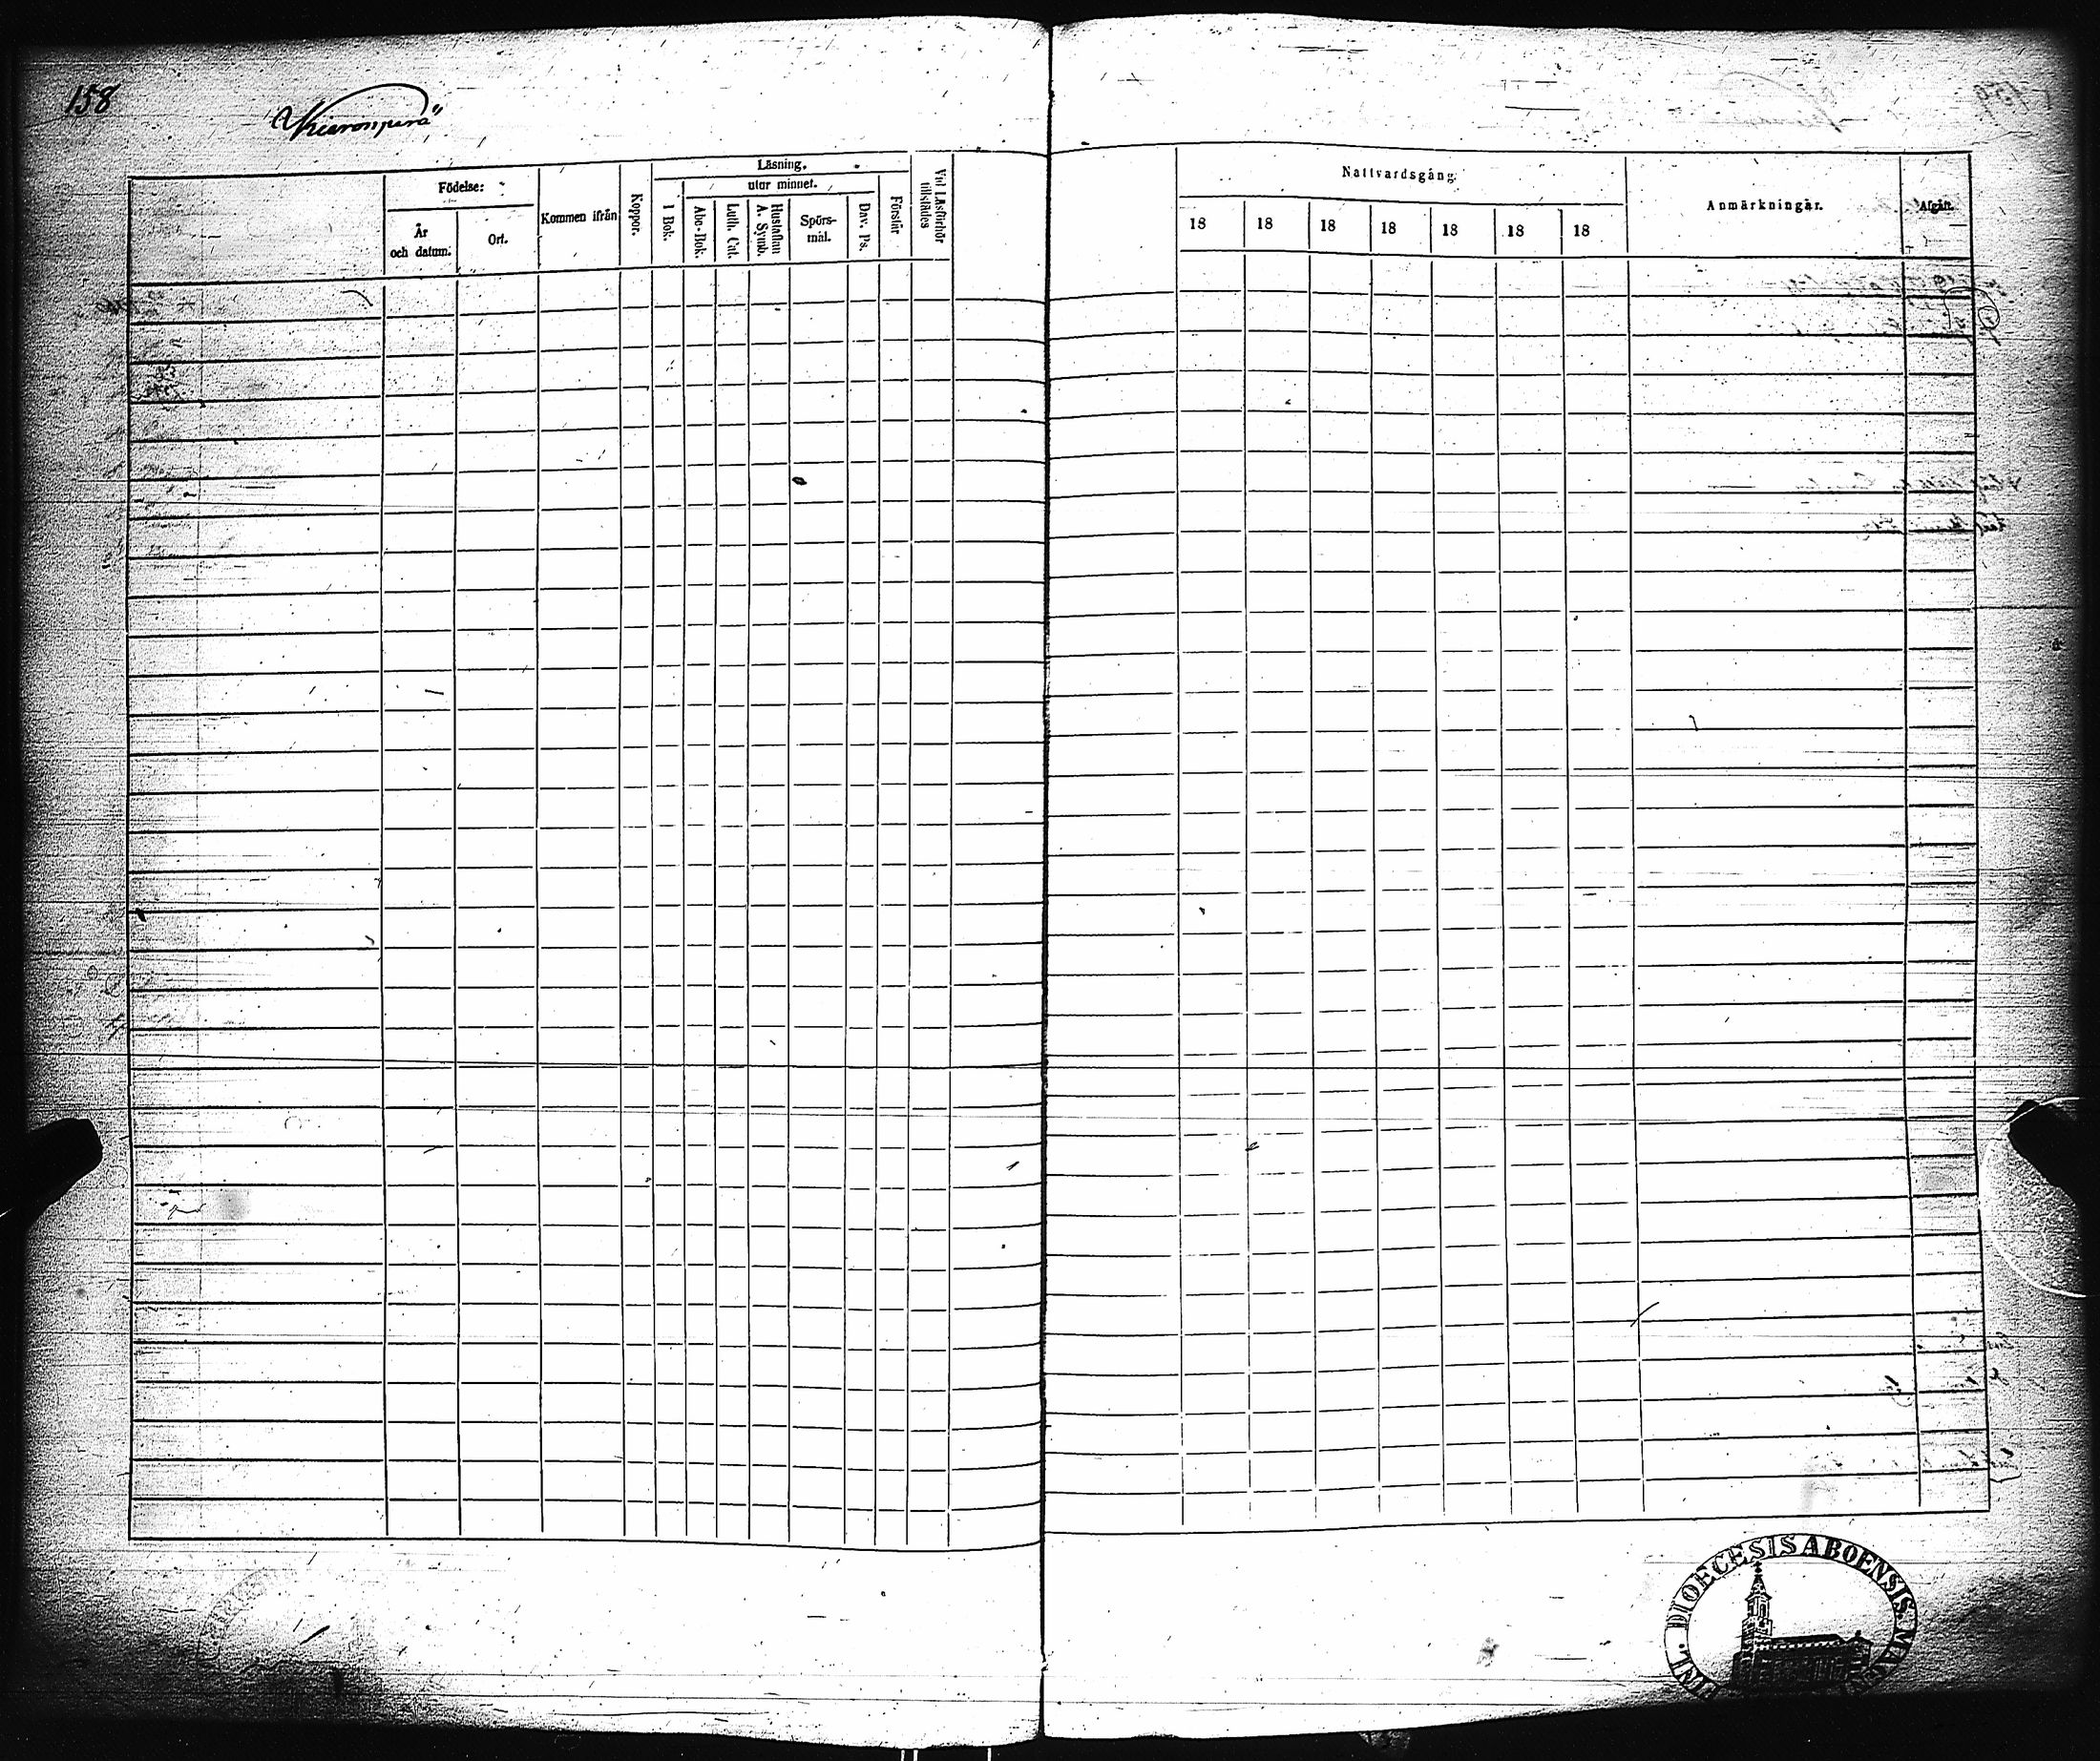 158
Läsning.
Födelse:
Kommen ifrån
Koppor.
utur minnet.
Förstår
Vid Läsförhör tillstädes
År och datum.
Ort.
I Bok.
Abc-Bok.
Luth. Cat.
Hustaflan A. Symb.
Spörs-mål.
Dav. Ps.
Nattvardsgång.
Anmärkningar.
Afgått.
18 18 18 18 18 18 18
DIOECESIS ABOENSIS.